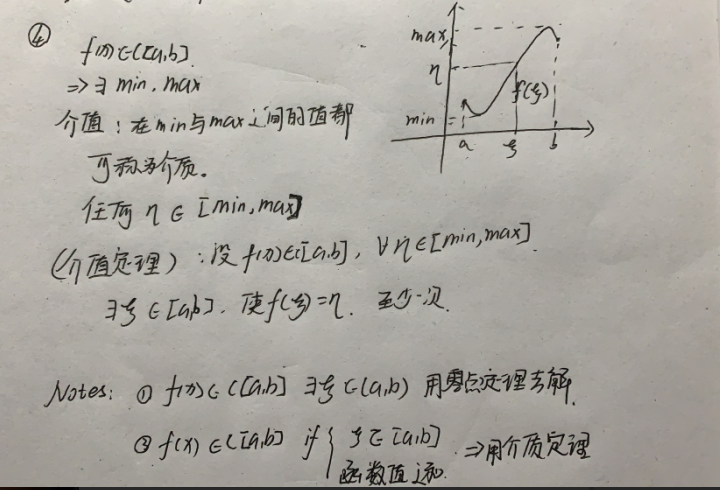 ④
f(x)∈C[a,b]
=> ∃ min, max
介值：在min与max之间的值都
可称为介质。
任何 η ∈ [min,max]
(介值定理)：设 f(x)∈C[a,b], ∀η∈[min,max]
∃ξ∈[a,b], 使f(ξ)=η. 至少一次.
max
η
min
f(ξ)
a ξ b
Notes: ① f(x)∈C[a,b] ∃ξ∈(a,b) 用零点定理去解.
② f(x)∈C[a,b] if { ξ∈[a,b] ⇒用介质定理
函数值